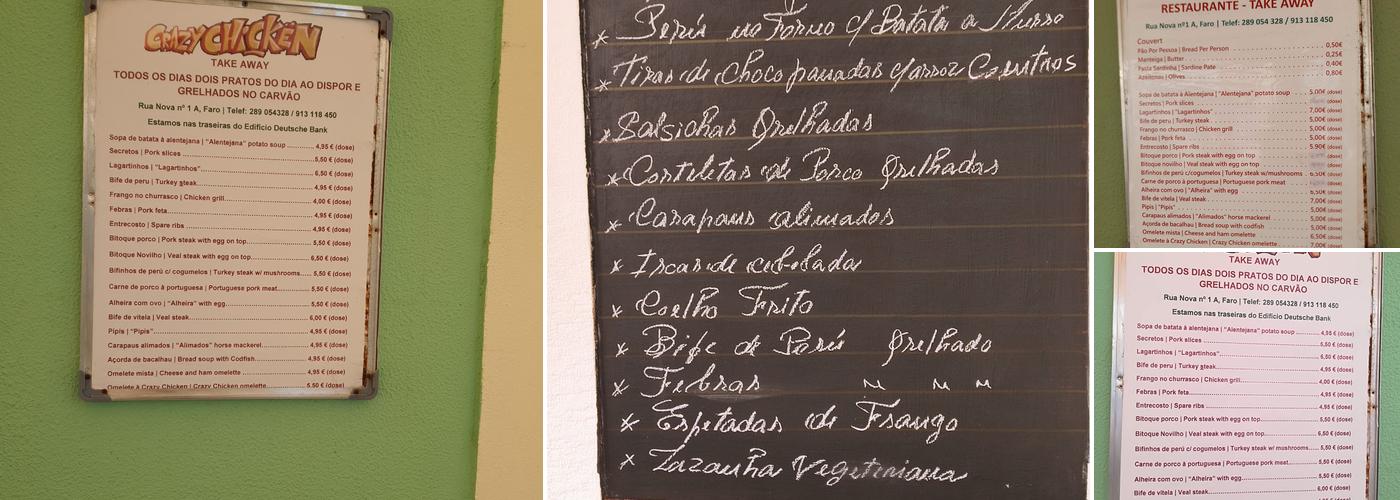 CRAZY CHICKEN
TAKE AWAY
TODOS OS DIAS DOIS PRATOS DO DIA AO DISPOR E
GRELHADOS NO CARVÃO
Rua Nova nº 1 A, Faro | Telef: 289 054328 / 913 118 450
Estamos nas traseiras do Edifício Deutsche Bank
Sopa de batata à alentejana | "Alentejana" potato soup 4,95 € (dose)
Secretos | Pork slices 5,50 € (dose)
Lagartinhos | "Lagartinhos" 6,50 € (dose)
Bife de peru | Turkey steak 4,95 € (dose)
Frango no churrasco | Chicken grill 4,00 € (dose)
Febras | Pork feta 4,95 € (dose)
Entrecosto | Spare ribs 4,95 € (dose)
Bitoque porco | Pork steak with egg on top 5,50 € (dose)
Bitoque Novilho | Veal steak with egg on top 6,50 € (dose)
Bifinhos de perú c/ cogumelos | Turkey steak w/ mushrooms 5,50 € (dose)
Carne de porco à portuguesa | Portuguese pork meat 5,50 € (dose)
Alheira com ovo | "Alheira" with egg 5,50 € (dose)
Bife de vitela | Veal steak 6,00 € (dose)
Pipis | "Pipis" 4,95 € (dose)
Carapaus alimados | "Alimados" horse mackerel 4,95 € (dose)
Açorda de bacalhau | Bread soup with Codfish 4,95 € (dose)
Omelete mista | Cheese and ham omelette 4,95 € (dose)
Omelete à Crazy Chicken | Crazy Chicken omelette 5,50 € (dose)
* Perú no Forno c/ Batata a Murro
* Tiras de Choco panadas c/arroz Coentros
* Salsichas Grelhadas
* Costeletas de Porco Grelhadas
* Carapaus alimados
* Iscas de cebolada
* Coelho Frito
* Bife de Perú Grelhado
* Febras " " "
* Espetadas de Frango
* Lazanha Vegetariana
RESTAURANTE - TAKE AWAY
Rua Nova nº1 A, Faro | Telef: 289 054 328 / 913 118 450
Couvert
Pão Por Pessoa | Bread Per Person 0,50€
Manteiga | Butter 0,25€
Pasta Sardinha | Sardine Pate 0,40€
Azeitonas | Olives 0,80€
Sopa de batata à Alentejana | "Alentejana" potato soup 5,00€ (dose)
Secretos | Pork slices (dose)
Lagartinhos | "Lagartinhos" 7,00€ (dose)
Bife de peru | Turkey steak 5,00€ (dose)
Frango no churrasco | Chicken grill 5,00€ (dose)
Febras | Pork feta 5,00€ (dose)
Entrecosto | Spare ribs 5,90€ (dose)
Bitoque porco | Pork steak with egg on top (dose)
Bitoque novilho | Veal steak with egg on top (dose)
Bifinhos de perú c/cogumelos | Turkey steak w/mushrooms 6,50€ (dose)
Carne de porco à portuguesa | Portuguese pork meat (dose)
Alheira com ovo | "Alheira" with egg 6,50€ (dose)
Bife de vitela | Veal steak 7,00€ (dose)
Pipis | "Pipis" 5,00€ (dose)
Carapaus alimados | "Alimados" horse mackerel 5,00€ (dose)
Açorda de bacalhau | Bread soup with codfish 5,00€ (dose)
Omelete mista | Cheese and ham omelette 6,50€ (dose)
Omelete à Crazy Chicken | Crazy Chicken omelette 7,00€ (dose)
TAKE AWAY
TODOS OS DIAS DOIS PRATOS DO DIA AO DISPOR E
GRELHADOS NO CARVÃO
Rua Nova nº 1 A, Faro | Telef: 289 054328 / 913 118 450
Estamos nas traseiras do Edifício Deutsche Bank
Sopa de batata à alentejana | "Alentejana" potato soup 4,95 € (dose)
Secretos | Pork slices 5,50 € (dose)
Lagartinhos | "Lagartinhos" 6,50 € (dose)
Bife de peru | Turkey steak 4,95 € (dose)
Frango no churrasco | Chicken grill 4,00 € (dose)
Febras | Pork feta 4,95 € (dose)
Entrecosto | Spare ribs 4,95 € (dose)
Bitoque porco | Pork steak with egg on top 5,50 € (dose)
Bitoque Novilho | Veal steak with egg on top 6,50 € (dose)
Bifinhos de perú c/ cogumelos | Turkey steak w/ mushrooms 5,50 € (dose)
Carne de porco à portuguesa | Portuguese pork meat 5,50 € (dose)
Alheira com ovo | "Alheira" with egg 5,50 € (dose)
Bife de vitela | Veal steak 6,00 € (dose)